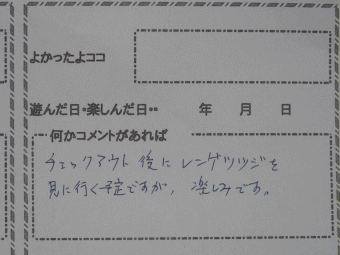 よかったよココ
遊んだ日・楽しんだ日・・ 年 月 日
何かコメントがあれば
チェックアウト後にレンゲツツジを
見に行く予定ですが、楽しみです。